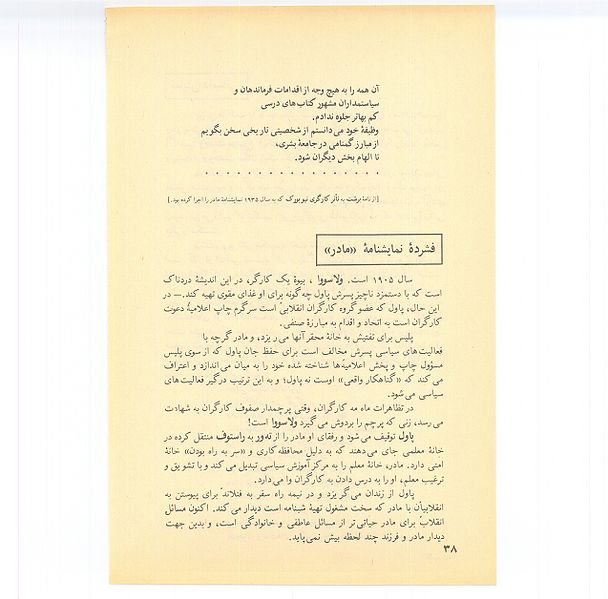 آن همه را به هیچ وجه از اقدامات فرماندهان و
سیاستمداران مشهور کتاب‌های درسی
کم بهاتر جلوه ندادم.
وظیفهٔ خود می‌دانستم از شخصیتی تاریخی سخن بگویم
از مبارز گمنامی در جامعهٔ بشری،
تا الهام بخش دیگران شود.
. . . . . . . . . . . . . . . .
[از نامهٔ برشت به تآتر کارگری نیویورک که به سال ۱۹۳۵ نمایشنامهٔ مادر را اجرا کرده بود.]
فشردهٔ نمایشنامهٔ «مادر»
سال ۱۹۰۵ است. ولاسووا ، بیوهٔ یک کارگر، در این اندیشهٔ دردناک
است که با دستمزد ناچیز پسرش پاول چه گونه برای او غذای مقوی تهیه کند.— در
این حال، پاول که عضو گروه کارگران انقلابی است سرگرم چاپ اعلامیهٔ دعوت
کارگران است به اتحاد و اقدام به مبارزهٔ صنفی.
پلیس برای تفتیش به خانهٔ محقر آنها می‌ریزد، و مادر گرچه با
فعالیت‌های سیاسی پسرش مخالف است برای حفظ جان پاول که از سوی پلیس
مسؤول چاپ و پخش اعلامیه‌ها شناخته شده خود را به میان می‌اندازد و اعتراف
می کند که «گناهکار واقعی» اوست نه پاول؛ و به این ترتیب درگیر فعالیت‌های
سیاسی می‌شود.
در تظاهرات ماه مه کارگران، وقتی پرچمدار صفوف کارگران به شهادت
می رسد، زنی که پرچم را بردوش می گیرد ولاسووا است!
پاول توقیف می شود و رفقای او مادر را از تهور به راستوف منتقل کرده در
خانهٔ معلمی جای می‌دهند که به دلیل محافظه کاری و «سر به راه بودن» خانهٔ
امنی دارد. مادر، خانهٔ معلم را به مرکز آموزش سیاسی تبدیل می کند و با تشویق و
ترغیب معلم، او را به درس دادن به کارگران وا می‌دارد.
پاول از زندان می گریزد و در نیمه راه سفر به فنلاند برای پیوستن به
انقلابیان با مادر که سخت مشغول تهیهٔ شبنامه است دیدار می کند. اکنون مسائل
انقلاب برای مادر حیاتی تر از مسائل عاطفی و خانوادگی است، و بدین جهت
دیدار مادر و فرزند چند لحظه بیش نمی‌پاید.
۳۸